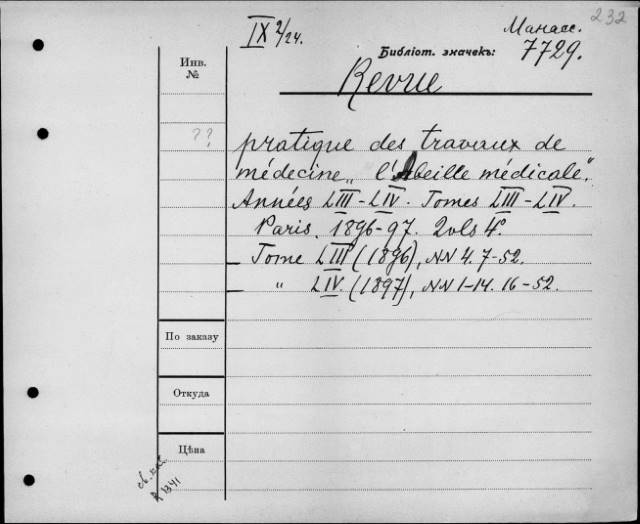 232
IX 2/24.
Манасс.
7729.
Библіот. значекъ:
Revue
Инв.
№
??
pratique des travaux de
médecine „l'Abeille médicale“.
Années LIII-LIV. Tomes LIII-LIV.
Paris. 1896-97. 2 vls 4°.
— Tome LIII (1896), NN 4. 7-52.
— " LIV. (1897), NN 1-14. 16-52.
По заказу
Откуда
Цѣна
св. кат
A 1341